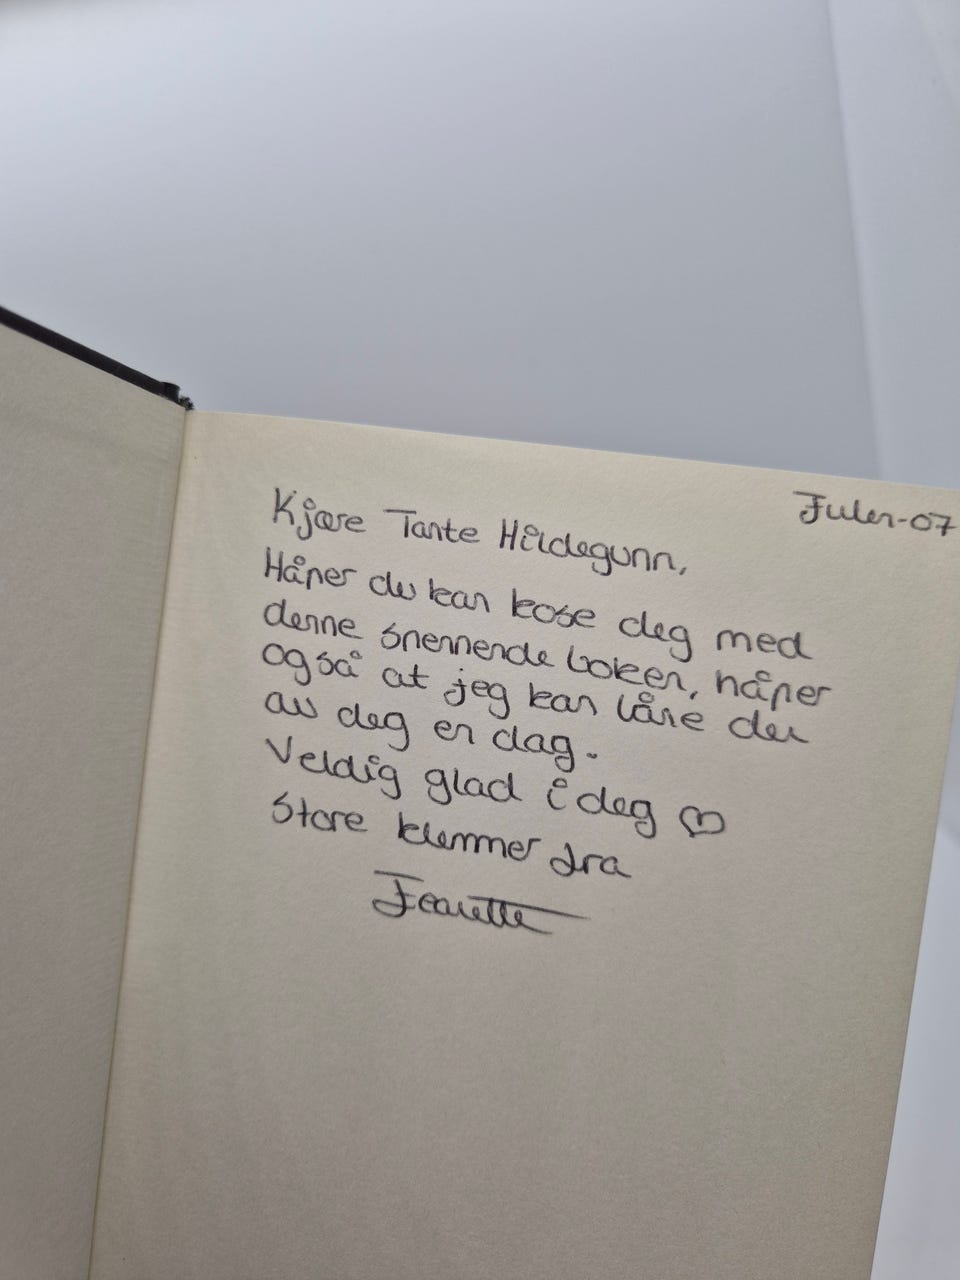 Julen-07
Kjære Tante Hildegunn,
Håper du kan kose deg med
denne spennende boken, håper
også at jeg kan låne den
av deg en dag.
Veldig glad i deg ♡
Store klemmer fra
Jeanette